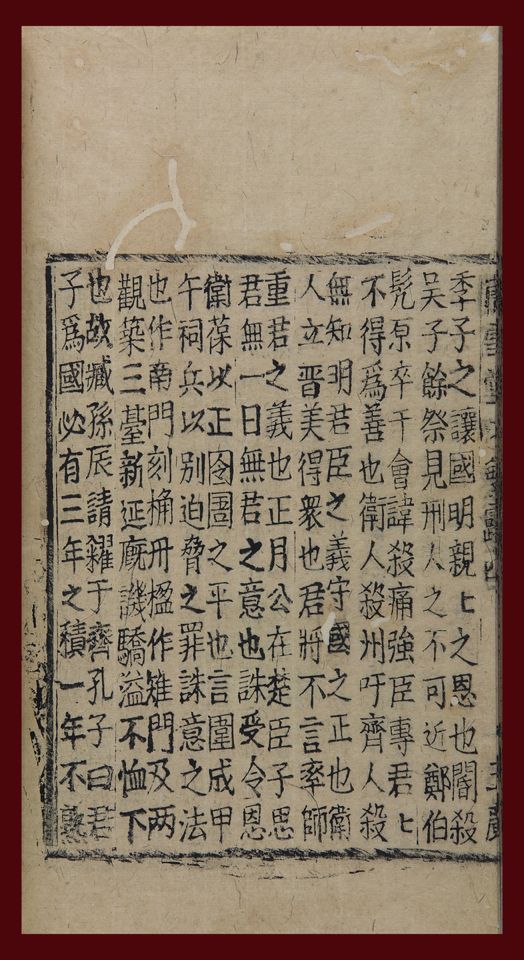 季子之讓國明親〻之恩也閽殺
吳子餘祭見刑人之不可近鄭伯
髡原卒于會諱殺痛強臣專君〻
不得為善也衛人殺州吁齊人殺
無知明君臣之義守國之正也衛
人立晋美得衆也君將不言率師
重君之義也正月公在楚臣子思
君無一日無君之意也誅受令恩
衛葆以正囹圄之平也言圍成甲
午祠兵以别迫脅之罪誅意之法
也作南門刻桷丹楹作雉門及两
觀築三臺新延廐譏驕溢不恤下
也故臧孫辰請糴于齊孔子曰君
子爲國必有三年之積一年不熟